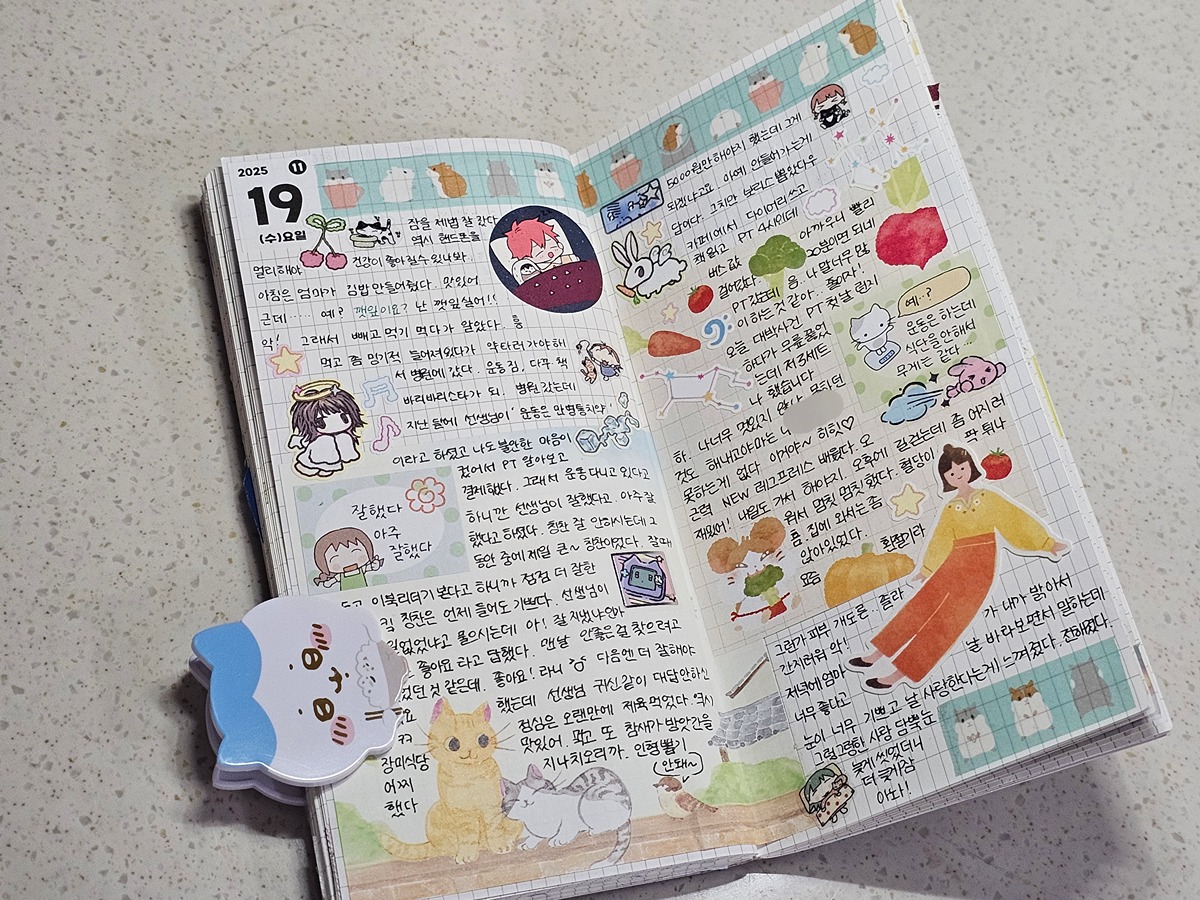 2025 11
19
(수)요일
잠을 제법 잘 갔다
역시 핸드폰을
멀리해야 건강이 좋아질수 있나봐
아침은 엄마가 김밥 만들어줬다. 맛있어
근데..... 예? 깻잎이요? 난 깻잎 싫어!!
악! 그래서 빼고 먹기 먹다가 말았다. 흥
먹고 좀 밍기적 늘어져있다가 약타러 가야해
서 병원에 갔다. 운동 짐, 다꾸 책
바리바리스타가 되. 병원 갔는데
지난 달에 선생님이 '운동은 만병통치약'
이라고 하셨고 나도 불안한 마음이
컸어서 PT 알아보고
결제했다. 그래서 운동 다니고 있다고
하니깐 선생님이 잘했다고. 아주 잘
했다고 하셨다. 칭찬 잘 안하시는데 그
동안 중에 제일 큰~ 칭찬이었다. 잘
잘했다
아주
잘했다
이북리더기 본다고 하니까 점점 더 잘한
칭찬은 언제 들어도 기쁘다. 선생님이
없었냐고 물으시는데 아! 잘 지냈냐였나
좋아요 라고 답했다. 맨날 안좋은걸 찾으려고
했던 것 같은데. 좋아요! 라니 다음엔 더 잘해야
요 했는데 선생님 귀신같이 대답안하신
ㅋㅋ 점심은 오랜만에 제육 먹었다. 역시
장미식당 맛있어. 꿕고 또 참새가 방앗간을
어찌 지나치오리까. 인형뽑기
했다
안돼~
5000원만 해야지 했는데 그게
되겠냐고요. 아예 안들어가는게
답이다. 그치만 보리스 뽑았다우
카페에서 다이어리 쓰고
책 읽고 PT 4시인데 아까우니 빨리
버스 값 20분이면 되네
걸어갔다. 응.. 나 말 너무 많
PT 갔는데 이 하는 것 같아.. 줄이자!
오늘 대박사건 PT 첫날 런지
하다가 무릎 꿇었
는데 저 3세트
나 했습니다
하. 나 너무 멋있지 않나 모티던
것도 해내고야 마는
못하는게 없다 이거야~ 히힛♡
근력 NEW 레그프레스 배웠다. 오
재밌어! 내일도 가서 해야지. 오후에 길걷는데 좀 어지러
워서 멈칫 멈칫 했다. 혈당이 팍 튀나
흠. 집에 와서는 좀
앉아있었다. 환절기라
요즘
예..?
운동은 하는데
식단을 안해서
무게는 같다...
그런가 피부 개도른. 졸라
간지러워 악!
저녁에 엄마가 내가 밝아서
너무 좋다고 날 바라보면서 말하는데
눈이 너무 기쁘고 날 사랑한다는게 느껴졌다. 진짜였다.
그렁그렁한 사랑 담뿍 눈
늦게 씻었더니
더 늦게 잠
아놔!